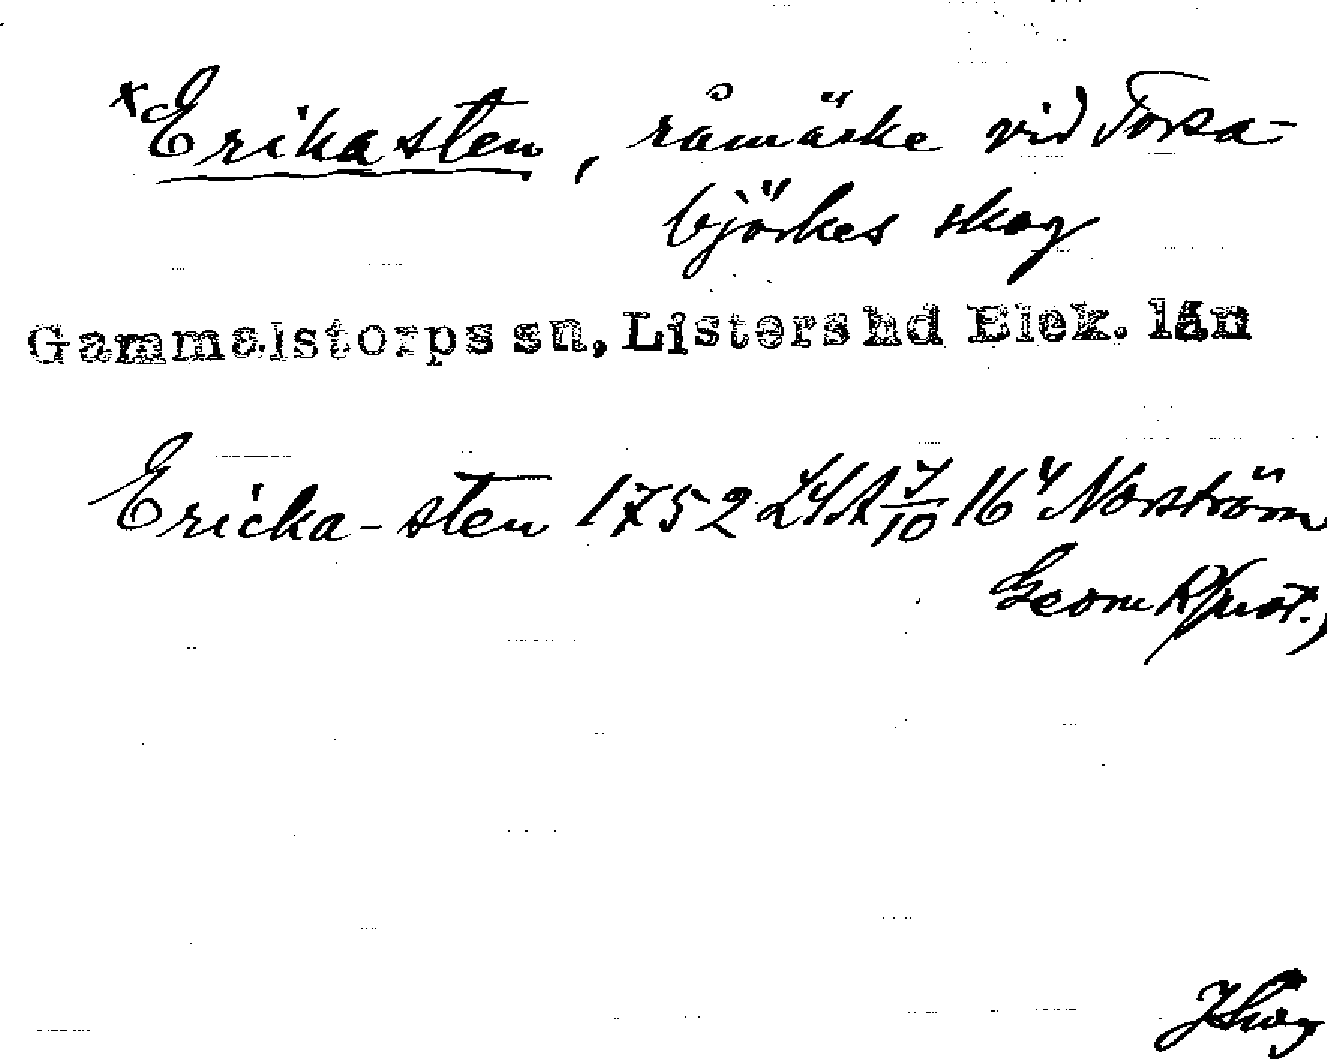 x Erikasten, råmärke vid Torsa-
björkes skog
Gammalstorps sn, Listers hd Blek. län
Ericka-sten 1752 LSA 7/10 16 4 Norström
Geom Rfprot.,
JSkog